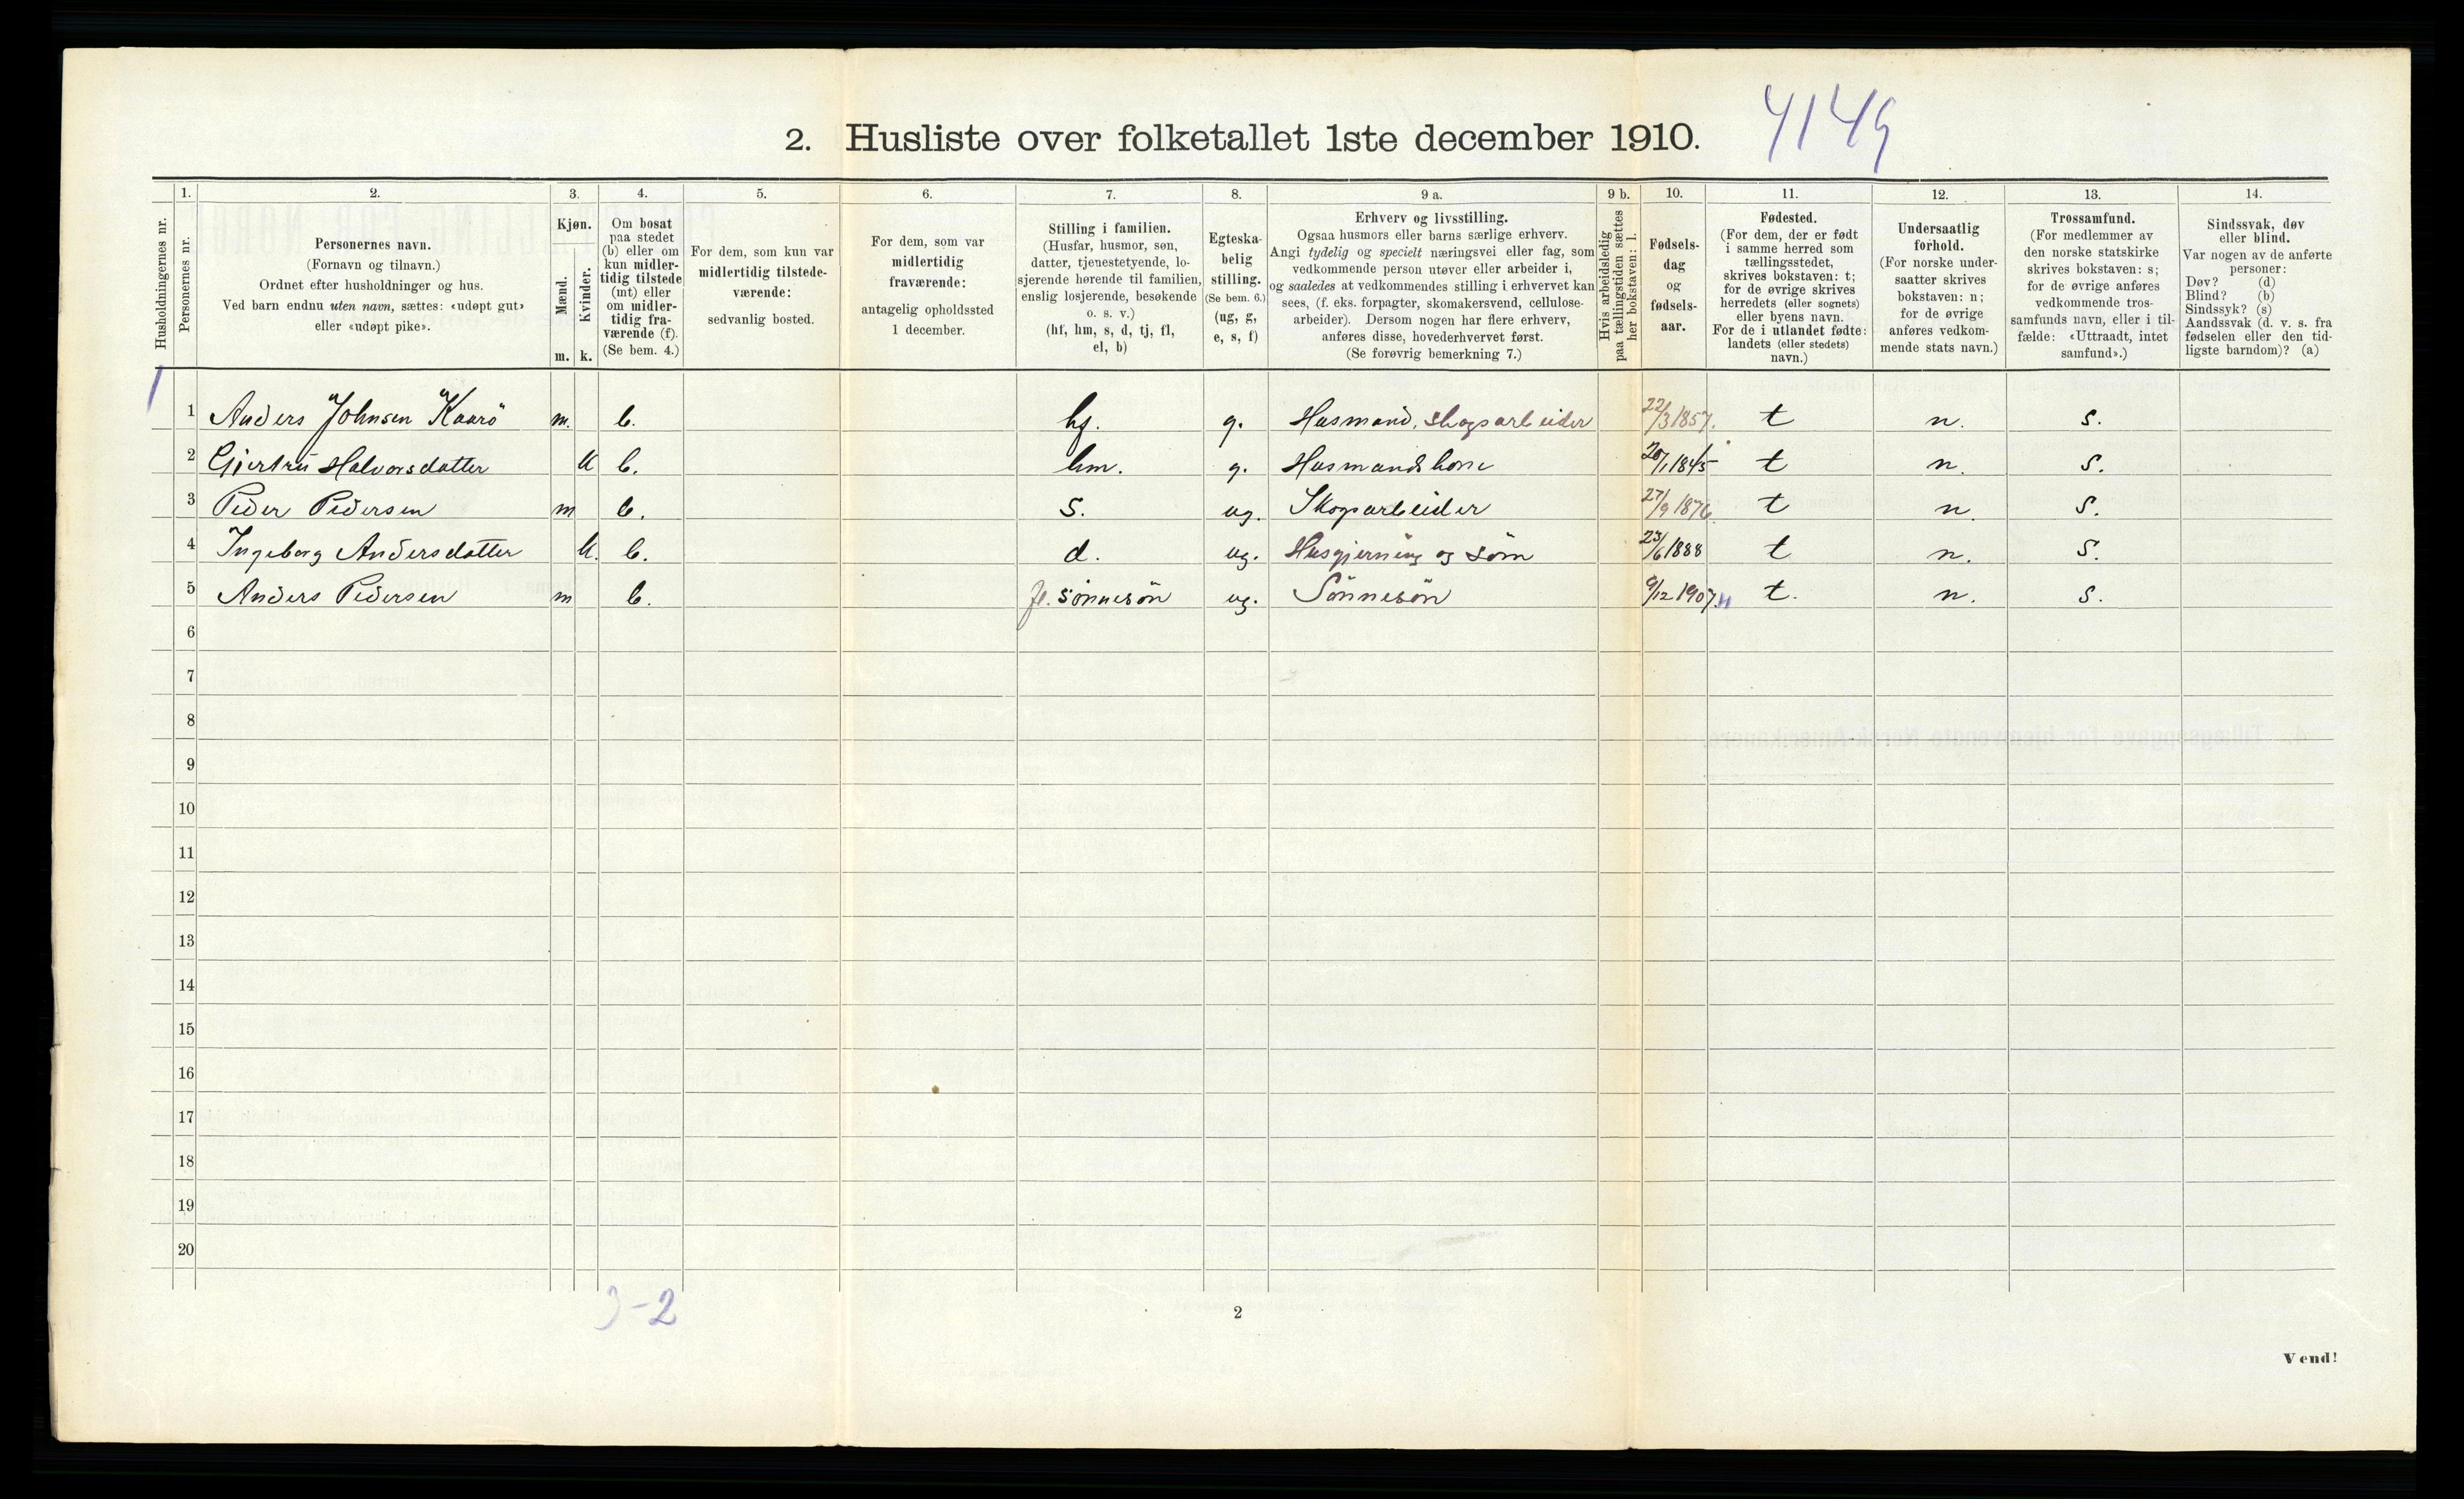 2. Husliste over folketallet 1ste december 1910.
4149
Husholdningernes nr.
1.
Personernes nr.
2.
Personernes navn.
(Fornavn og tilnavn.)
Ordnet efter husholdninger og hus.
Ved barn endnu uten navn, sættes: «udøpt gut»
eller «udøpt pike».
3.
Kjøn.
Mænd.
Kvinder.
m. k.
4.
Om bosat
paa stedet
(b) eller om
kun midler-
tidig tilstede
(mt) eller
om midler-
tidig fra-
værende (f).
(Se bem. 4.)
5.
For dem, som kun var
midlertidig tilstede-
værende:
sedvanlig bosted.
6.
For dem, som var
midlertidig
fraværende:
antagelig opholdssted
1 december.
7.
Stilling i familien.
(Husfar, husmor, søn,
datter, tjenestetyende, lo-
sjerende hørende til familien,
enslig losjerende, besøkende
o. s. v.)
(hf, hm, s, d, tj, fl,
el, b)
8.
Egteska-
belig
stilling.
(Se bem. 6.)
(ug, g,
e, s, f)
9 a.
Erhverv og livsstilling.
Ogsaa husmors eller barns særlige erhverv.
Angi tydelig og specielt næringsvei eller fag, som
vedkommende person utøver eller arbeider i,
og saaledes at vedkommendes stilling i erhvervet kan
sees, (f. eks. forpagter, skomakersvend, cellulose-
arbeider). Dersom nogen har flere erhverv,
anføres disse, hovederhvervet først.
(Se forøvrig bemerkning 7.)
9 b.
Hvis arbeidsledig
paa tællingstiden sættes
her bokstaven: l.
10.
Fødsels-
dag
og
fødsels-
aar.
11.
Fødested.
(For dem, der er født
i samme herred som
tællingsstedet,
skrives bokstaven: t;
for de øvrige skrives
herredets (eller sognets)
eller byens navn.
For de i utlandet fødte:
landets (eller stedets)
navn.)
12.
Undersaatlig
forhold.
(For norske under-
saatter skrives
bokstaven: n;
for de øvrige
anføres vedkom-
mende stats navn.)
13.
Trossamfund.
(For medlemmer av
den norske statskirke
skrives bokstaven: s;
for de øvrige anføres
vedkommende tros-
samfunds navn, eller i til-
fælde: «Uttraadt, intet
samfund».)
14.
Sindssvak, døv
eller blind.
Var nogen av de anførte
personer:
Døv? (d)
Blind? (b)
Sindssyk? (s)
Aandssvak (d. v. s. fra
fødselen eller den tid-
ligste barndom)? (a)
1 1 Anders Johnsen "Kaarö" m. b. hf. g. Husmand, skogsarbeider 22/3 1857. t n. s.
2 Gjertru Halvorsdatter k b. hm. g. Husmandskone 20/1 1845 t n. s.
3 Peder Pedersen m b. s. ug. Skogsarbeider 27/9 1876. t n. s.
4 Ingeborg Andersdatter k. b. d. ug. Husgjerning og söm 23/6 1888 t n. s.
5 Anders Pedersen m b. fl. sönnesön ug. Sönnesön 9/12 1907. t. n. s.
6
7
8
9
10
11
12
13
14
15
16
17
18
19
20
3-2
2
Vend!